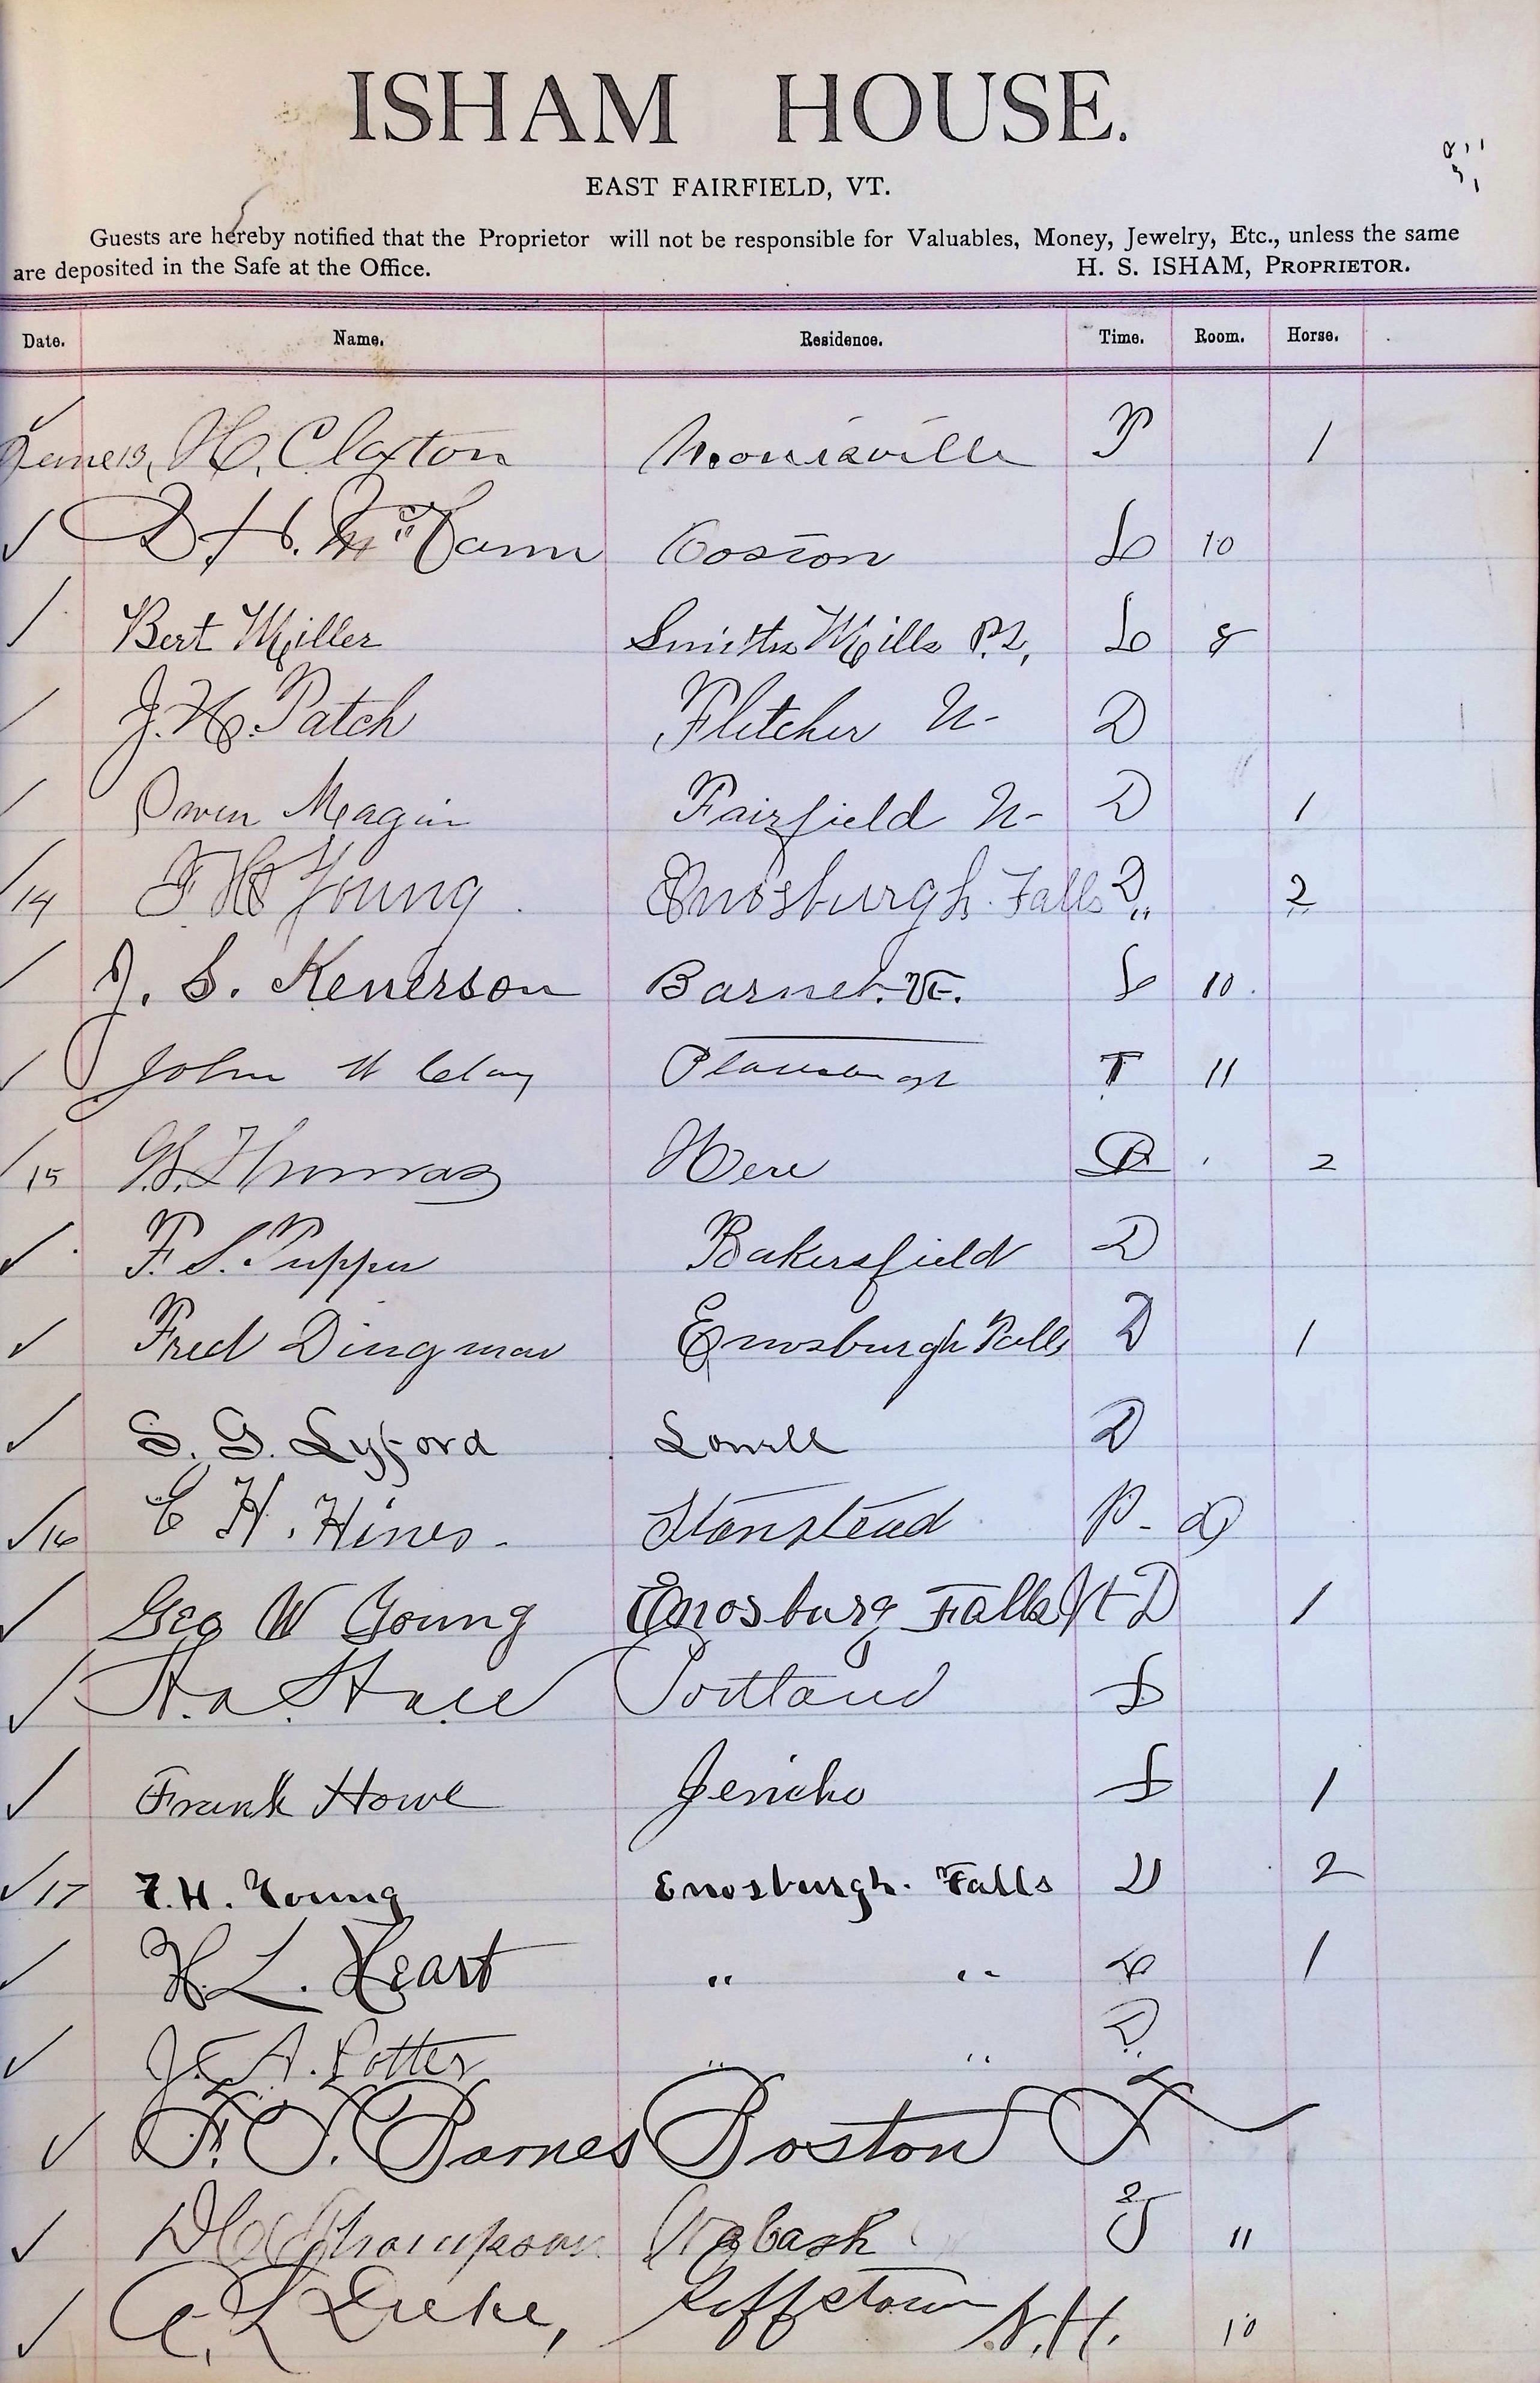 ISHAM HOUSE.
EAST FAIRFIELD, VT.
Guests are hereby notified that the Proprietor will not be responsible for Valuables, Money, Jewelry, Etc., unless the same
are deposited in the Safe at the Office. H. S. ISHAM, PROPRIETOR.
Date. Name. Residence. Time. Room. Horse.
June 13, H. Claxton Morrisville P 1
D H. McCann Boston L 10
Bert Miller Smiths Mills P.Q. L 8
J. H. Patch Fletcher D
Owen Magin Fairfield D 1
14 F H Young Enosburgh Falls D 2
J. S. Kenerson Barnet. Vt. S 10
John W Clay T 11
15 Thomas Here D 2
F. S. Tupper Bakersfield D
Fred Dingman Enosburgh Falls D 1
S. G. Lyford Lowell D
16 C H. Hines Stanstead P
Geo W Young Enosburg Falls Vt D 1
Portland S
Frank Howe Jericho S 1
17 F. H. Young Enosburgh. Falls D 2
H. L. Heart " " 1
J. A. Potter " " D
F. J. Barnes Boston
Thompson Wabash 11
Duke, N.H. 10